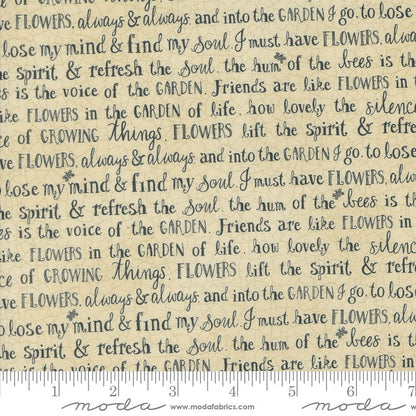 ce of GROWING things. FLOWERS lift the spirit & refr
ve FLOWERS, always & always and into the GARDEN I go. to lose
o lose my mind & find my soul. I must have FLOWERS, alwa
the spirit & refresh the soul. the hum of the bees is the
es is the voice of the GARDEN. Friends are like FLOWERS in
like FLOWERS in the GARDEN of life. how lovely the silenc
ce of GROWING things. FLOWERS lift the spirit & refr
ve FLOWERS, always & always and into the GARDEN I go. to lose
o lose my mind & find my soul. I must have FLOWERS, alwa
the spirit & refresh the soul. the hum of the bees is the
es is the voice of the GARDEN. Friends are like FLOWERS in
like FLOWERS in the GARDEN of life. how lovely the silenc
ce of GROWING things. FLOWERS lift the spirit & refr
ve FLOWERS, always & always and into the GARDEN I go. to lose
o lose my mind & find my soul. I must have FLOWERS, alwa
the spirit & refresh the soul. the hum of the bees is the
es is the voice of the GARDEN. Friends are like FLOWERS in
1 2 3 4 5 6 7
moda www.modafabrics.com moda